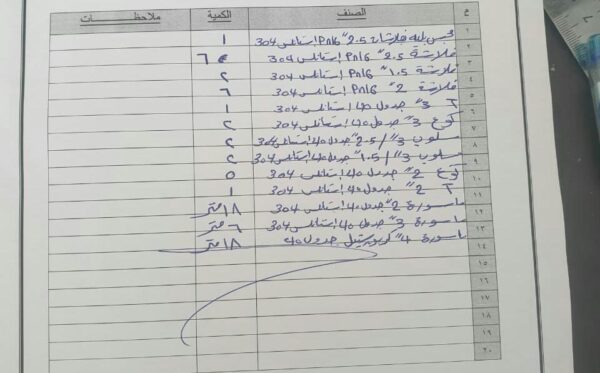 م الصنف الكمية ملاحظــــات
١ محبس بليه فلانشات 2.5" Pn16 استانلس 304 ١
٢ فلانشة 2.5" Pn16 استانلس 304 ٦
٣ فلانشة 1.5" Pn16 استانلس 304 ٢
٤ فلانشة 2" Pn16 استانلس 304 ٦
٥ T 3" جدول 40 استانلس 304 ١
٦ كوع 3" جدول 40 استانلس 304 ٢
٧ مسلوب 3"/2.5" جدول 40 استانلس 304 ٢
٨ مسلوب 3"/1.5" جدول 40 استانلس 304 ٢
٩ كوع 2" جدول 40 استانلس 304 ٥
١٠ T 2" جدول 40 استانلس 304 ١
١١ ماسورة 2" جدول 40 استانلس 304 ١٨ متر
١٢ ماسورة 3" جدول 40 استانلس 304 ٦ متر
١٣ ماسورة 4" كربون ستيل جدول 40 ١٨ متر
١٤
١٥
١٦
١٧
١٨
١٩
٢٠